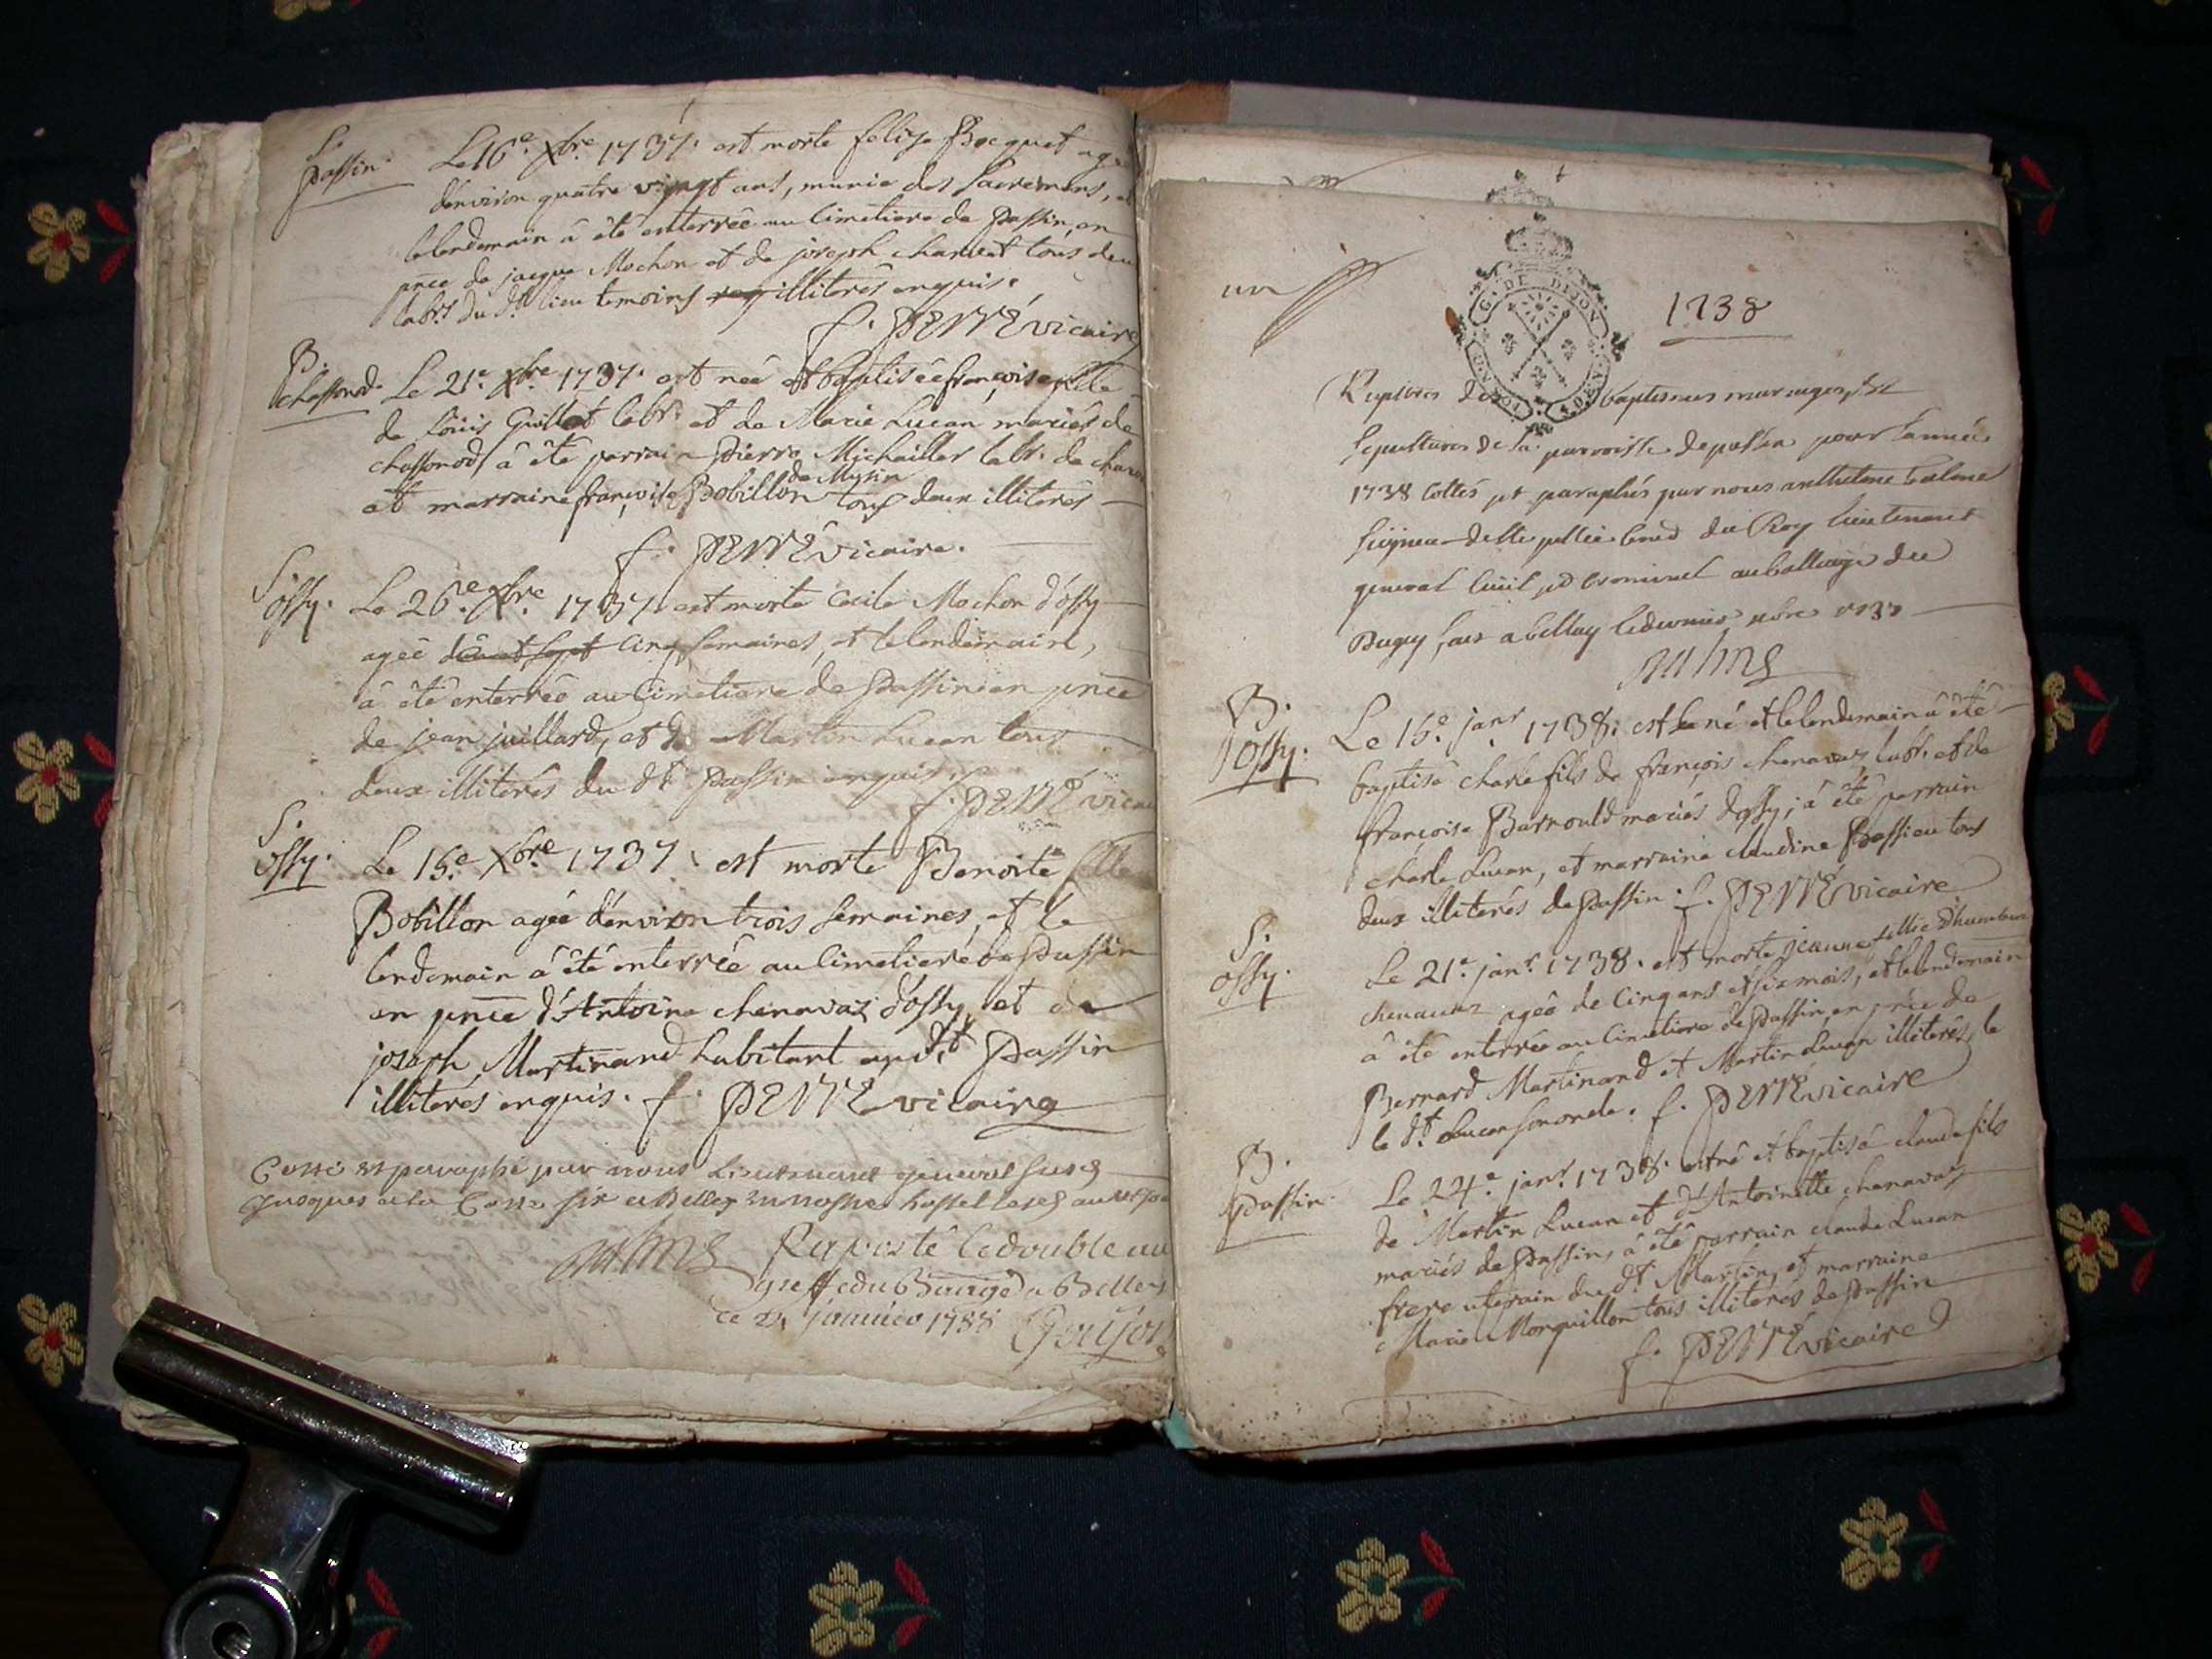 S.
passin.
Le 16.e Xbre 1737. est morte felise Bocquet agé
d'environ quatre vingt ans, munie des sacremens, et
le lendemain â été enterrée au Cimetiere de passin, en
pnce de jacque Mochon et de joseph charvet tous deu
labrs. du dt. lieu temoins illiterés enquis.
f. PERRÉ vicaire
B.
chassonod.
Le 21.e Xbre 1737. est neé et baptisée françoise fille
de loüis Guillot labr. et de Marie Lucan mariés de
chassonod, â été parrain pierre Michailler labr. de
de Mysin
et marraine françoise Bobillon tous deux illiterés
f. PERRÉ vicaire.
S.
ossy.
Le 26.e Xbre 1737. est morte Cecile Mochon d'ossy
ageé de Cinq semaines, et le lendemain,
â été enterrée au Cimetiere de passin en pnce
de jean juillard, et de Martin Lucan tous
deux illiterés du dt. passin enquis.
f. PERRÉ vicai
S.
ossy.
Le 15.e Xbre 1737. est morte Benoite fille
Bobillon ageé d'environ trois semaines, et le
lendemain â été enterrée au Cimetiere de passin
en pnce d'Antoine chenavaz d'ossy, et de
joseph Martinand habitant au dt. passin
illiterés enquis. f. PERRÉ vicaire
Cotté et paraphé par nous Lieutenant general
jusques a la Cotte six a Belley en nostre hostel
Raporté le double au
greffe du Baillage de Belley
ce janvier 1738 Goujon
un
G. DE DIJON
1738
Registres des baptesmes mariages et
sepultures de la parroisse de passin pour l'année
1738 Cottés et paraphés par nous anthelme
seigneur de Conser du Roy lieutenant
general Civil et Criminel au balliage du
Bugey fait a belley le dernier xbre 1737
B.
ossy.
Le 15.e janr. 1738. est né et le lendemain â été
baptisé charle fils de françois chenavaz labr. et de
françoise Barnould mariés d'ossy; â été parrain
charle Lucan, et marraine claudine passieu tous
deux illiterés de passin. f. PERRÉ vicaire
S.
ossy.
Le 21.e janr. 1738. est morte jeanne fillie d'humbert
chenavaz ageé de Cinq ans et six mois, et le lendemain
â été enterrée au Cimetiere de passin, en pnce de
Bernard Martinand et Martin Lucan illiterés, le
le dt. Lucan f. PERRÉ vicaire
B.
passin.
Le 24.e janr. 1738. est né et baptisé claude fils
de Martin Lucan et d'Antoinette chenavaz
mariés de passin, â été parrain claude Lucan
frere uterain du dt. Martin, et marraine
Marie Monguillon tous illiterés de passin
f. PERRÉ vicaire